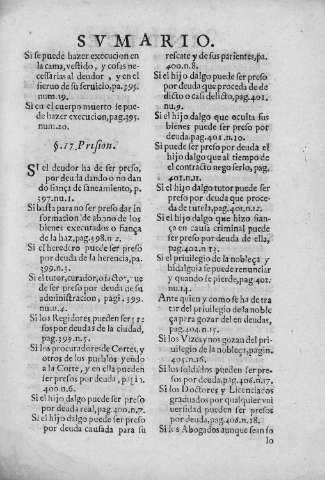 SVMARIO.
Si se puede hazer execucion en
la cama, vestido, y cosas ne-
cessarias al deudor, y en el
siervo de su servicio, pa. 395.
num. 19.
Si en el cuerpo muerto se pue-
de hazer execucion, pag. 395.
num. 20.
§. 17. Prision.
SI el deudor ha de ser preso,
por deuda dando o no dan
do fiança de saneamiento, p.
397. nu. 1.
Si basta para no ser preso dar in
formacion de abono de los
bienes executados o fiança
de la haz, pag. 398. n. 2.
Si el heredero puede ser preso
por deuda de la herencia, pa.
399. n. 3.
Si el tutor, curador, o factor, ue
de ser preso por deuda de su
administracion, pagi. 399.
nu. 4.
Si los Regidores pueden ser
por deudas de la ciudad,
pag. 399. n. 5.
Si los procuradores de Cortes, y
otros de los pueblos yendo
a la Corte, y en ella pueden
ser presos por deuda, pagi.
400. n. 6.
Si el hijo dalgo puede ser preso
por deuda real, pag. 400. n. 7.
Si el hijo dalgo puede ser preso
por deuda causada para su
rescate y de sus parientes, pa.
400. n. 8.
Si el hijo dalgo puede ser preso
por deuda que proceda de de
dicto o casi delicto, pag. 401.
nu. 9.
Si el hijo dalgo que oculta sus
bienes puede ser preso por
deuda, pag. 401. n. 10.
Si puede ser preso por deuda el
hijo dalgo que al tiempo de
el contracto nego serlo, pag.
401. n. 11.
Si el hijo dalgo tutor puede ser
preso por deuda que proce
da de tutela, pag. 401. n. 12.
Si el hijo dalgo que hizo fian-
ça en causa criminal puede
ser preso por deuda de ella,
pag. 401. n. 13.
Si el privilegio de la nobleça y
hidalguia se puede renunciar
y quando se pierde, pag. 402.
nu. 14.
Ante quien y como se ha de tra
tar del privilegio de la noble
ça para gozar del en deudas,
pag. 404. n. 15.
Si los Vizcynos gozan del pri-
vilegio de la nobleça, pagin.
405. n. 16.
Si los soldados pueden ser pre-
sos por deuda, pag. 406. n. 17.
Si los Doctores y Licenciados
graduados por qualquier vni
uersidad pueden ser presos
por deuda, pag. 406. n. 18.
Si los Abogados aunque sean so
lo